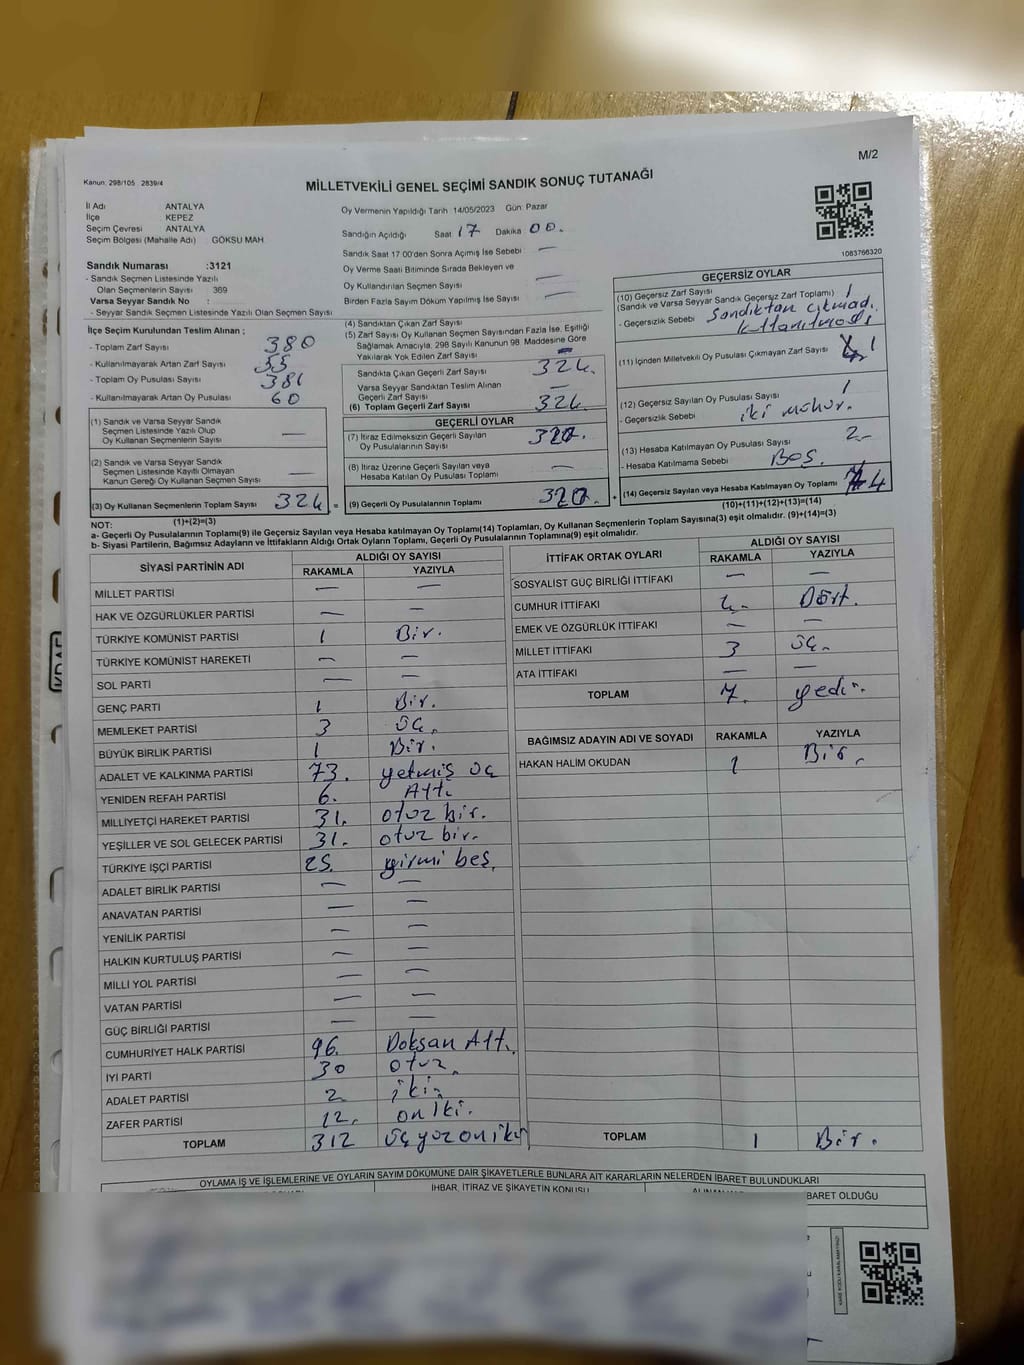 M/2
Kanun: 298/105 2839/4
MİLLETVEKİLİ GENEL SEÇİMİ SANDIK SONUÇ TUTANAĞI
İl Adı ANTALYA
İlçe KEPEZ
Seçim Çevresi ANTALYA
Seçim Bölgesi (Mahalle Adı) GÖKSU MAH.
Sandık Numarası :3121
- Sandık Seçmen Listesinde Yazılı
Olan Seçmenlerin Sayısı 369
Varsa Seyyar Sandık No :
- Seyyar Sandık Seçmen Listesinde Yazılı Olan Seçmen Sayısı
Oy Vermenin Yapıldığı Tarih 14/05/2023 Gün: Pazar
Sandığın Açıldığı Saat 17 Dakika 00.
Sandık Saat 17:00'den Sonra Açılmış İse Sebebi —
Oy Verme Saati Bitiminde Sırada Bekleyen ve
Oy Kullandırılan Seçmen Sayısı —
Birden Fazla Sayım Döküm Yapılmış İse Sayısı —
1083766320
İlçe Seçim Kurulundan Teslim Alınan ;
- Toplam Zarf Sayısı 380
- Kullanılmayarak Artan Zarf Sayısı 55
- Toplam Oy Pusulası Sayısı 381
- Kullanılmayarak Artan Oy Pusulası 60
(1) Sandık ve Varsa Seyyar Sandık
Seçmen Listesinde Yazılı Olup
Oy Kullanan Seçmenlerin Sayısı —
(2) Sandık ve Varsa Seyyar Sandık
Seçmen Listesinde Kayıtlı Olmayan
Kanun Gereği Oy Kullanan Seçmen Sayısı —
(3) Oy Kullanan Seçmenlerin Toplam Sayısı 324 =
(1)+(2)=(3)
(4) Sandıktan Çıkan Zarf Sayısı
(5) Zarf Sayısı Oy Kullanan Seçmen Sayısından Fazla İse, Eşitliği
Sağlamak Amacıyla, 298 Sayılı Kanunun 98. Maddesine Göre
Yakılarak Yok Edilen Zarf Sayısı —
Sandıkta Çıkan Geçerli Zarf Sayısı 324.
Varsa Seyyar Sandıktan Teslim Alınan
Geçerli Zarf Sayısı —
(6) Toplam Geçerli Zarf Sayısı 324.
GEÇERLİ OYLAR
(7) İtiraz Edilmeksizin Geçerli Sayılan
Oy Pusulalarının Sayısı 320.
(8) İtiraz Üzerine Geçerli Sayılan veya
Hesaba Katılan Oy Pusulası Sayısı —
(9) Geçerli Oy Pusulalarının Toplamı 320. +
GEÇERSİZ OYLAR
(10) Geçersiz Zarf Sayısı
(Sandık ve Varsa Seyyar Sandık Geçersiz Zarf Toplamı) 1
- Geçersizlik Sebebi Sandıktan çıkmadı.
(11) İçinden Milletvekili Oy Pusulası Çıkmayan Zarf Sayısı 1
(12) Geçersiz Sayılan Oy Pusulası Sayısı 1
- Geçersizlik Sebebi iki mühür.
(13) Hesaba Katılmayan Oy Pusulası Sayısı 2-
- Hesaba Katılmama Sebebi Boş.
(14) Geçersiz Sayılan veya Hesaba Katılmayan Oy Toplamı 4
(10)+(11)+(12)+(13)=(14)
NOT:
a- Geçerli Oy Pusulalarının Toplamı(9) ile Geçersiz Sayılan veya Hesaba Katılmayan Oy Toplamı(14) Toplamları, Oy Kullanan Seçmenlerin Toplam Sayısına(3) eşit olmalıdır. (9)+(14)=(3)
b- Siyasi Partilerin, Bağımsız Adayların ve İttifakların Aldığı Ortak Oyların Toplamı, Geçerli Oy Pusulalarının Toplamına(9) eşit olmalıdır.
SİYASİ PARTİNİN ADI ALDIĞI OY SAYISI
RAKAMLA YAZIYLA
MİLLET PARTİSİ — —
HAK VE ÖZGÜRLÜKLER PARTİSİ — —
TÜRKİYE KOMÜNİST PARTİSİ 1 Bir.
TÜRKİYE KOMÜNİST HAREKETİ — —
SOL PARTİ — —
GENÇ PARTİ 1 Bir.
MEMLEKET PARTİSİ 3 üç.
BÜYÜK BİRLİK PARTİSİ 1 Bir.
ADALET VE KALKINMA PARTİSİ 73. yetmiş üç
YENİDEN REFAH PARTİSİ 6. Altı
MİLLİYETÇİ HAREKET PARTİSİ 31. otuz bir.
YEŞİLLER VE SOL GELECEK PARTİSİ 31. otuz bir.
TÜRKİYE İŞÇİ PARTİSİ 25. yirmi beş.
ADALET BİRLİK PARTİSİ — —
ANAVATAN PARTİSİ — —
YENİLİK PARTİSİ — —
HALKIN KURTULUŞ PARTİSİ — —
MİLLİ YOL PARTİSİ — —
VATAN PARTİSİ — —
GÜÇ BİRLİĞİ PARTİSİ — —
CUMHURİYET HALK PARTİSİ 96. Doksan Altı.
İYİ PARTİ 30 otuz.
ADALET PARTİSİ 2 iki.
ZAFER PARTİSİ 12. on iki.
TOPLAM 312 üç yüz on iki
İTTİFAK ORTAK OYLARI ALDIĞI OY SAYISI
RAKAMLA YAZIYLA
SOSYALİST GÜÇ BİRLİĞİ İTTİFAKI — —
CUMHUR İTTİFAKI 4- Dört.
EMEK VE ÖZGÜRLÜK İTTİFAKI — —
MİLLET İTTİFAKI 3 üç.
ATA İTTİFAKI — —
TOPLAM 7. yedi.
BAĞIMSIZ ADAYIN ADI VE SOYADI RAKAMLA YAZIYLA
HAKAN HALİM OKUDAN 1 Bir.
TOPLAM 1 Bir.
OYLAMA İŞ VE İŞLEMLERİNE VE OYLARIN SAYIM DÖKÜMÜNE DAİR ŞİKAYETLERLE BUNLARA AİT KARARLARIN NELERDEN İBARET BULUNDUKLARI
İHBAR, İTİRAZ VE ŞİKAYETİN KONUSU
BARET OLDUĞU